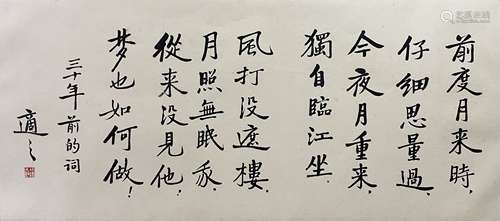 前度月来時,
仔細思量過,
今夜月重来,
獨自臨江坐.
風打没遮樓,
月照無眠我,
從来没見他,
梦也如何做!
三十年前的詞
適之